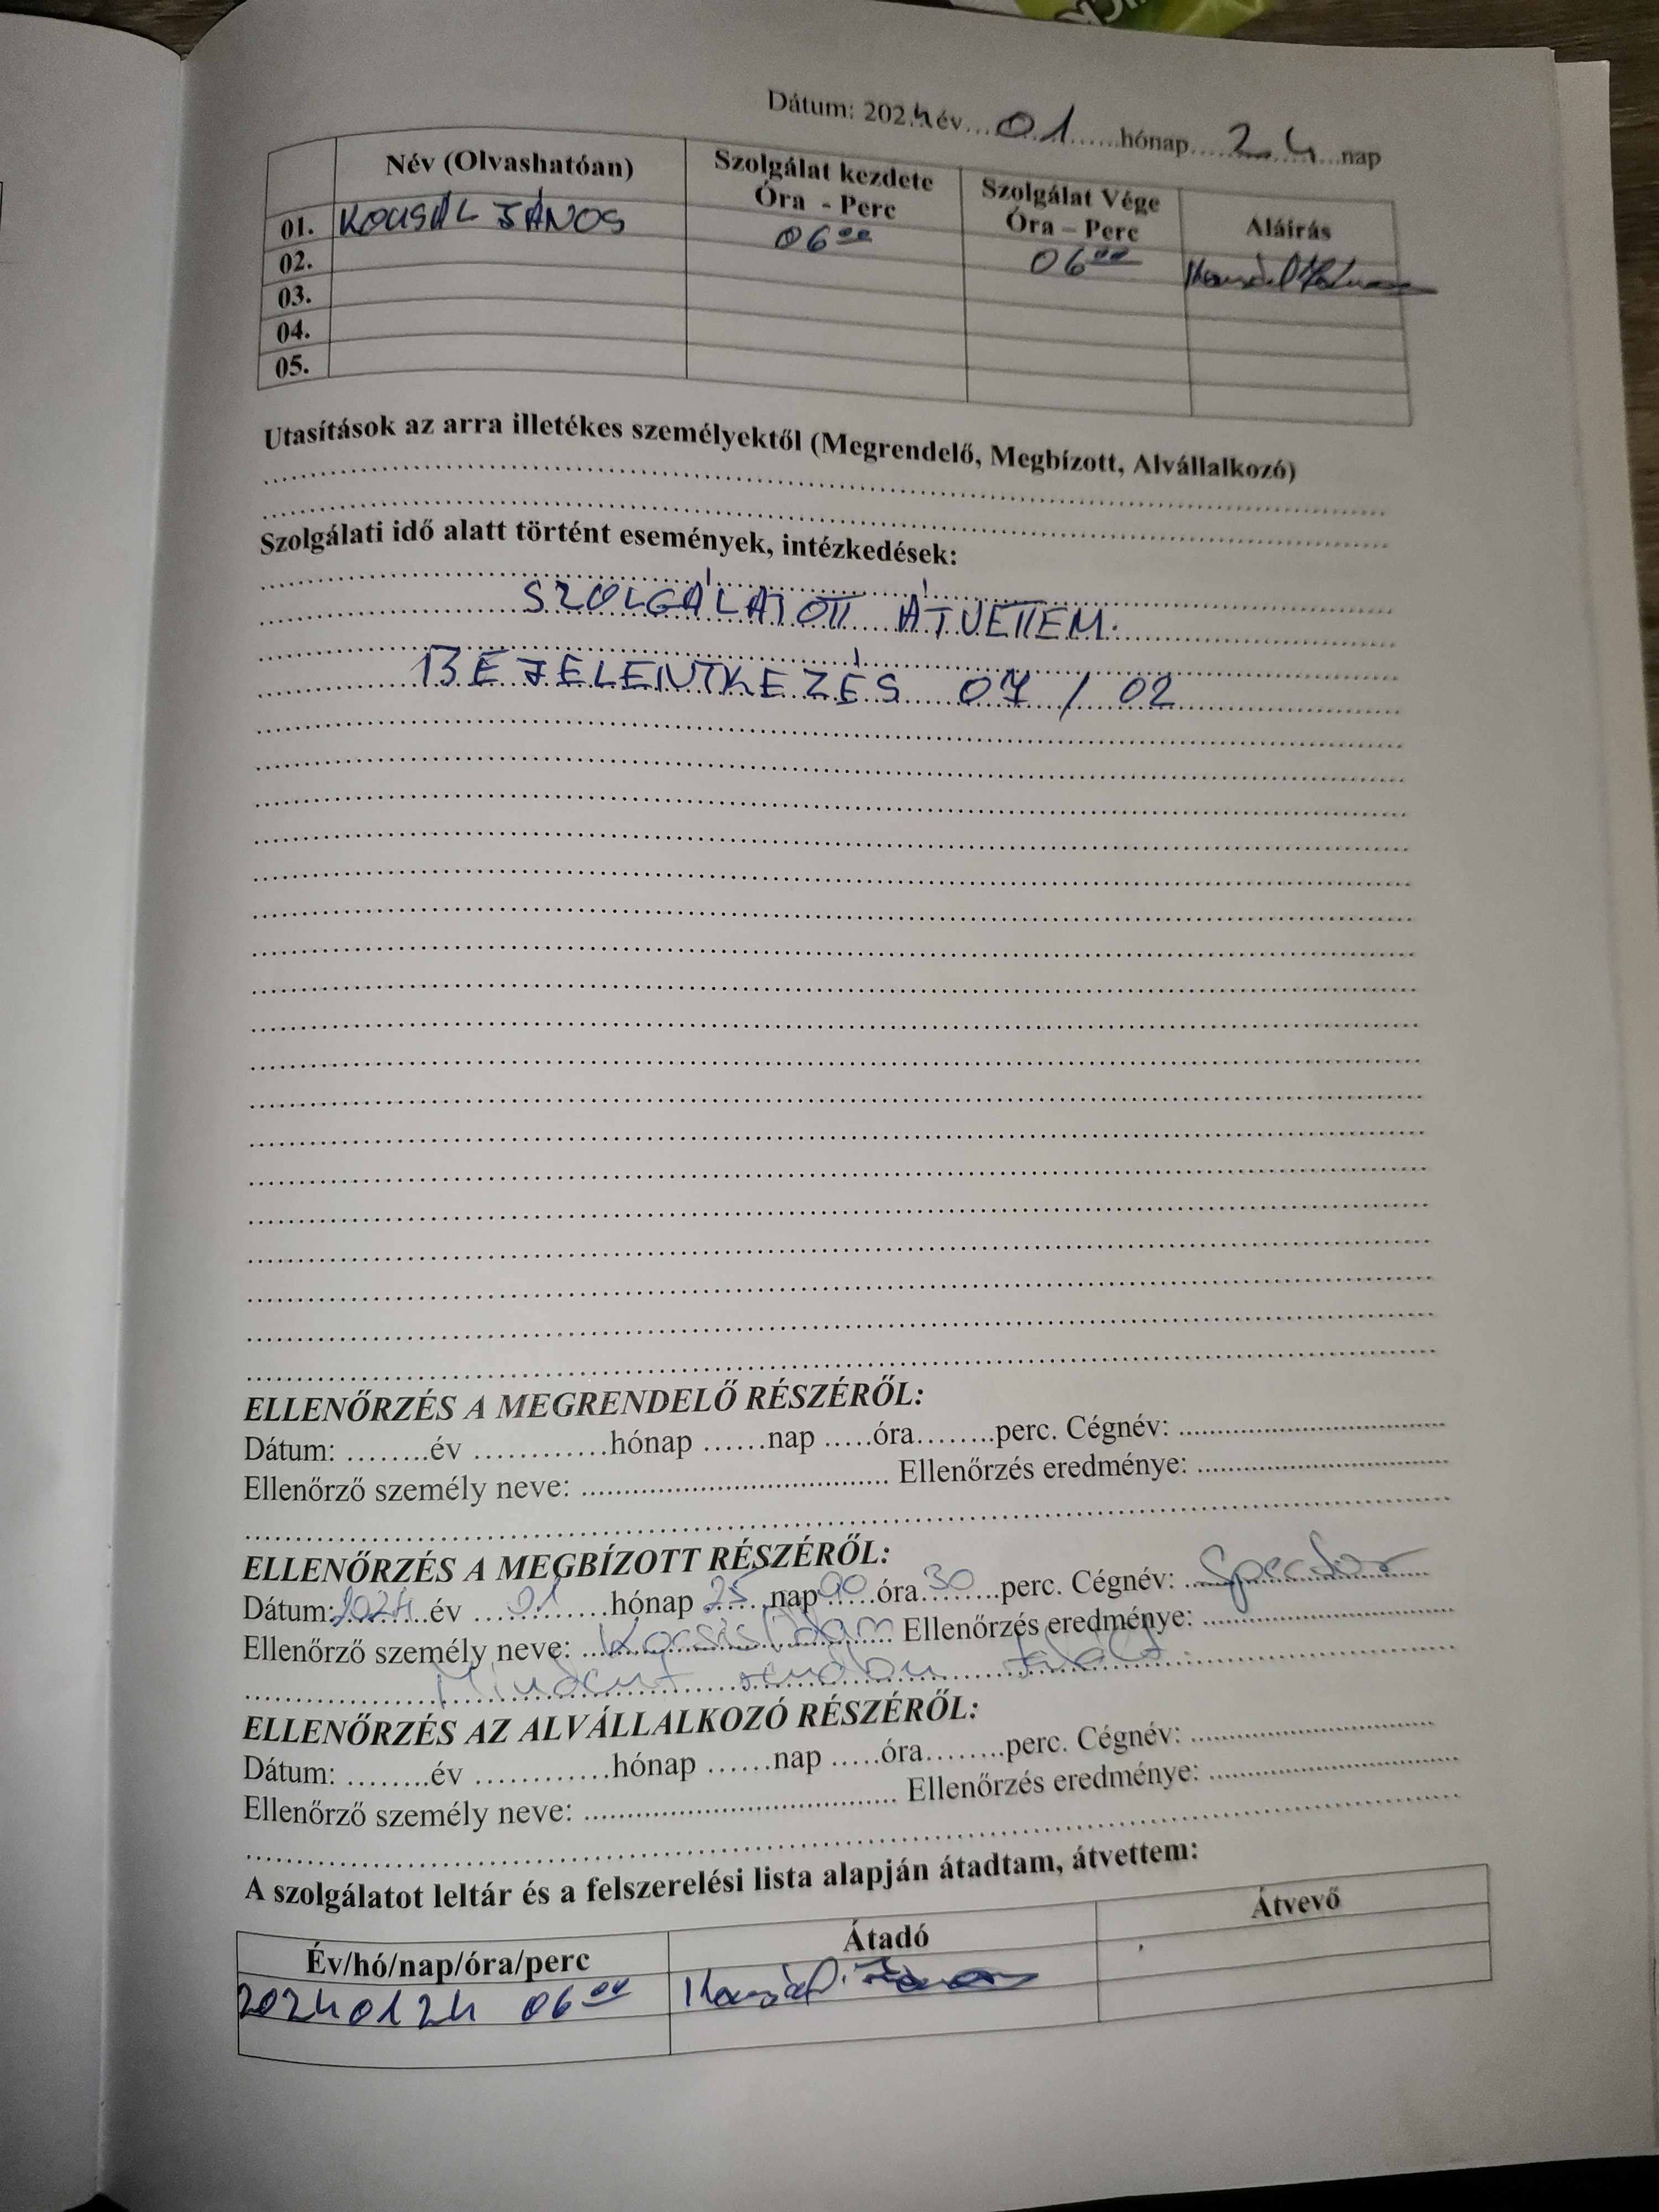 Dátum: 2024 év 01 hónap 24 nap
Név (Olvashatóan) Szolgálat kezdete Óra - Perc Szolgálat Vége Óra – Perc Aláírás
01. KOUSÁL JÁNOS 06 00 06 00
02.
03.
04.
05.
Utasítások az arra illetékes személyektől (Megrendelő, Megbízott, Alvállalkozó)
Szolgálati idő alatt történt események, intézkedések:
SZOLGÁLATOTT ÁTVETTEM.
BEJELENTKEZÉS 07 / 02
ELLENŐRZÉS A MEGRENDELŐ RÉSZÉRŐL:
Dátum: ........év ............hónap ......nap .....óra........perc. Cégnév: ..................
Ellenőrző személy neve: .................. Ellenőrzés eredménye: ..................
ELLENŐRZÉS A MEGBÍZOTT RÉSZÉRŐL:
Dátum: 2024 év 01 hónap 25 nap 00 óra 30 perc. Cégnév:
Ellenőrző személy neve: Kocsis Ádám Ellenőrzés eredménye:
Mindent rendben talált.
ELLENŐRZÉS AZ ALVÁLLALKOZÓ RÉSZÉRŐL:
Dátum: ........év ............hónap ......nap .....óra........perc. Cégnév: ..................
Ellenőrző személy neve: .................. Ellenőrzés eredménye: ..................
A szolgálatot leltár és a felszerelési lista alapján átadtam, átvettem:
Év/hó/nap/óra/perc Átadó Átvevő
2024 01 24 06 00